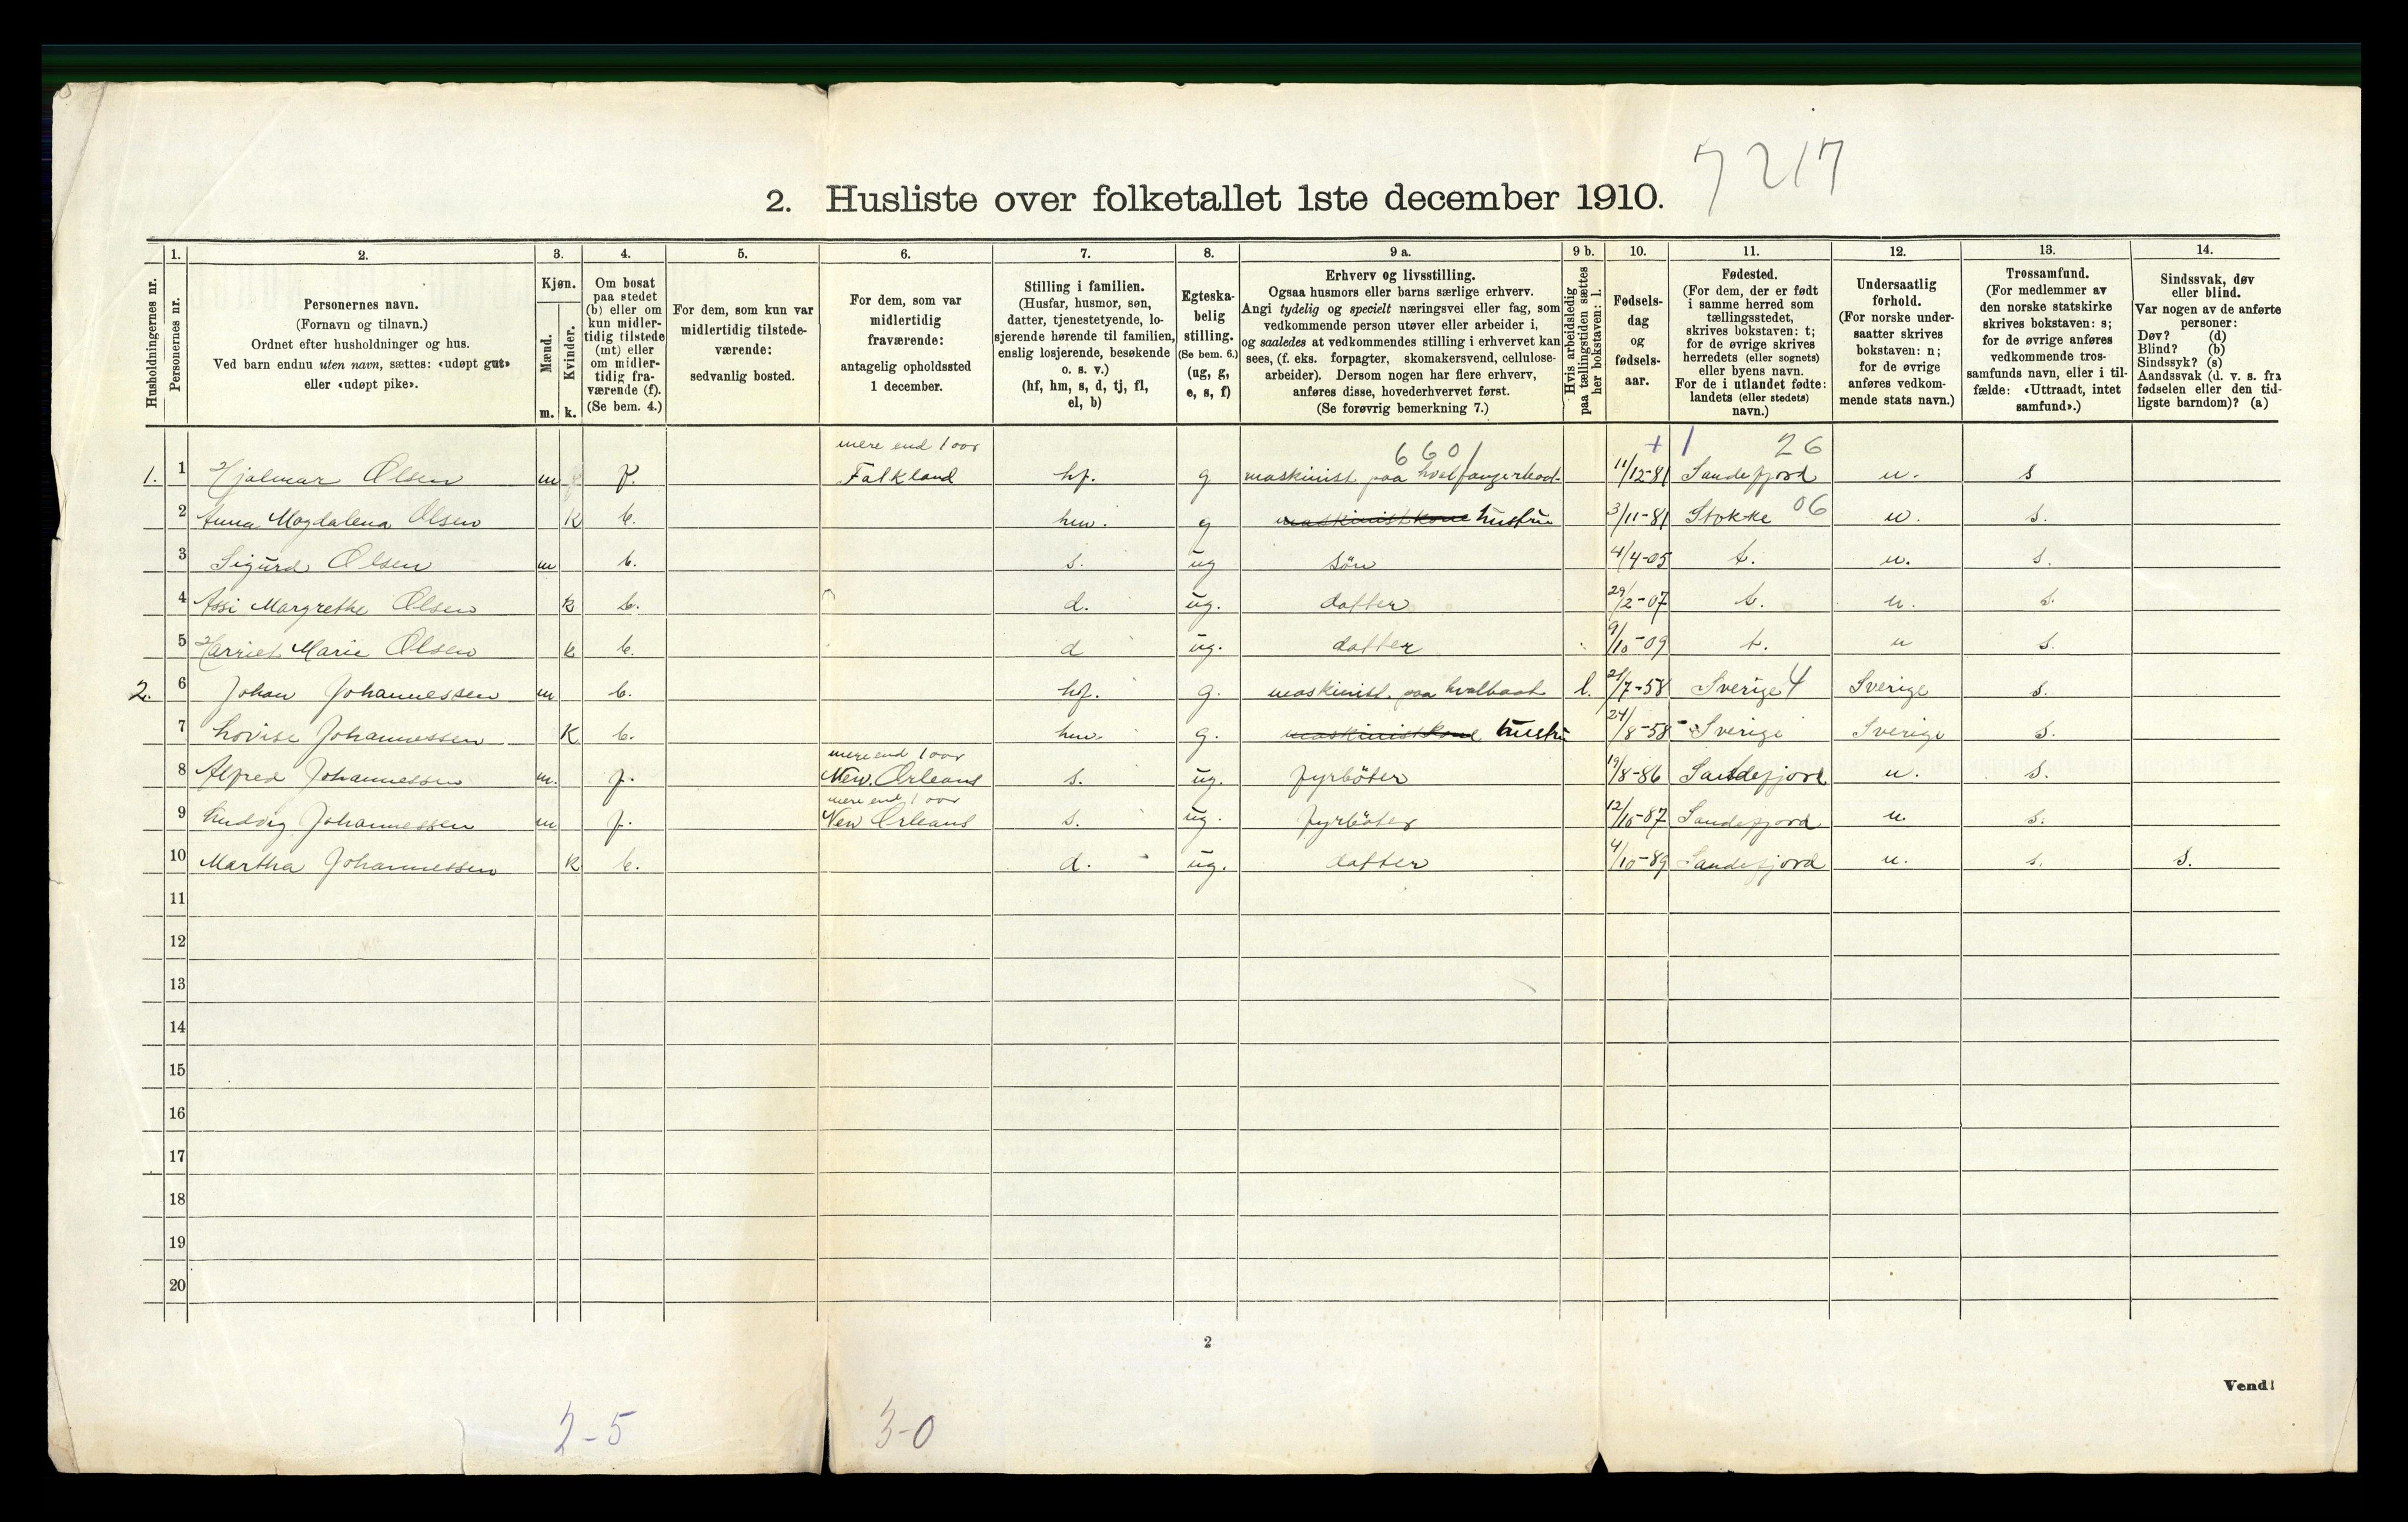 7217
2. Husliste over folketallet 1ste december 1910.
Husholdningernes nr.
1.
Personernes nr.
2.
Personernes navn.
(Fornavn og tilnavn.)
Ordnet efter husholdninger og hus.
Ved barn endnu uten navn, sættes: «udøpt gut»
eller «udøpt pike».
3.
Kjøn.
Mænd.
Kvinder.
m. k.
4.
Om bosat
paa stedet
(b) eller om
kun midler-
tidig tilstede
(mt) eller
om midler-
tidig fra-
værende (f).
(Se bem. 4.)
5.
For dem, som kun var
midlertidig tilstede-
værende:
sedvanlig bosted.
6.
For dem, som var
midlertidig
fraværende:
antagelig opholdssted
1 december.
7.
Stilling i familien.
(Husfar, husmor, søn,
datter, tjenestetyende, lo-
sjerende hørende til familien,
enslig losjerende, besøkende
o. s. v.)
(hf, hm, s, d, tj, fl,
el, b)
8.
Egteska-
belig
stilling.
(Se bem. 6.)
(ug, g,
e, s, f)
9 a.
Erhverv og livsstilling.
Ogsaa husmors eller barns særlige erhverv.
Angi tydelig og specielt næringsvei eller fag, som
vedkommende person utøver eller arbeider i,
og saaledes at vedkommendes stilling i erhvervet kan
sees, (f. eks. forpagter, skomakersvend, cellulose-
arbeider). Dersom nogen har flere erhverv,
anføres disse, hovederhvervet først.
(Se forøvrig bemerkning 7.)
9 b.
Hvis arbeidsledig
paa tællingstiden sættes
her bokstaven: l.
10.
Fødsels-
dag
og
fødsels-
aar.
11.
Fødested.
(For dem, der er født
i samme herred som
tællingsstedet,
skrives bokstaven: t;
for de øvrige skrives
herredets (eller sognets)
eller byens navn.
For de i utlandet fødte:
landets (eller stedets)
navn.)
12.
Undersaatlig
forhold.
(For norske under-
saatter skrives
bokstaven: n;
for de øvrige
anføres vedkom-
mende stats navn.)
13.
Trossamfund.
(For medlemmer av
den norske statskirke
skrives bokstaven: s;
for de øvrige anføres
vedkommende tros-
samfunds navn, eller i til-
fælde: «Uttraadt, intet
samfund».)
14.
Sindssvak, døv
eller blind.
Var nogen av de anførte
personer:
Døv? (d)
Blind? (b)
Sindssyk? (s)
Aandssvak (d. v. s. fra
fødselen eller den tid-
ligste barndom)? (a)
mere end 1 aar 6601 + 1 26
1. 1 Hjalmar Olsen m f. Falkland hf. g maskinist paa hvalfangerbaat 11/12-81 Sandefjord n. s
2 Anna Magdalena Olsen k b. hm. g maskinistkone hustru 3/11-81 Stokke 06 n. s.
3 Sigurd Olsen m b. s. ug søn 4/4-05 t. n. s.
4 Assi Margrethe Olsen k b. d. ug. datter 29/2-07 t. n. s.
5 Harriet Marie Olsen k b. d ug. datter 9/10-09 t. n s.
2. 6 Johan Johannessen m b. hf. g. maskinist paa hvalbaat l. 21/7-58 Sverige 4 Sverige s.
7 Lovise Johannessen k b. hm. g. maskinistkone hustru 24/8-58 Sverige Sverige s.
mere end 1 aar
8 Alfred Johannessen m. f. New. Orleans s. ug. fyrbøter 19/8-86 Sandefjord n. s.
mere end 1 aar
9 Ludvig Johannessen m f. New Orleans s. ug. fyrbøter 12/10-87 Sandefjord n. s.
10 Martha Johannessen k b. d. ug. datter 4/10-89 Sandefjord n. s. s.
11
12
13
14
15
16
17
18
19
20
2
Vend!
2-5 3-0